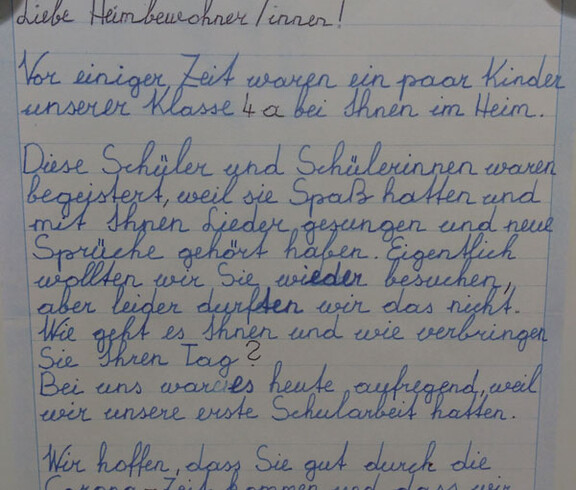 Liebe Heimbewohner/innen!
Vor einiger Zeit waren ein paar Kinder
unserer Klasse 4a bei Ihnen im Heim.
Diese Schüler und Schülerinnen waren
begeistert, weil sie Spaß hatten und
mit Ihnen Lieder gesungen und neue
Sprüche gehört haben. Eigentlich
wollten wir Sie wieder besuchen,
aber leider durften wir das nicht.
Wie geht es Ihnen und wie verbringen
Sie Ihren Tag?
Bei uns war es heute aufregend, weil
wir unsere erste Schularbeit hatten.
Wir hoffen, dass Sie gut durch die
Corona-Zeit kommen und dass wir